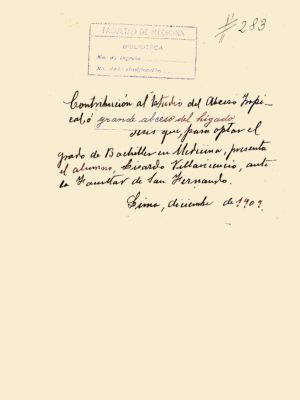 # 283
FACULTAD DE MEDICINA
BIBLIOTECA
No. de ingreso
No. de la clasificación
Contribución al Estudio del Absceso Tropi-
cal ó grande absceso del hígado
Tesis que, para optar el
grado de Bachiller en Medicina, presenta
el alumno, Lizardo Villavicencio, ante
la Facultad de San Fernando.
Lima, diciembre de 1909.